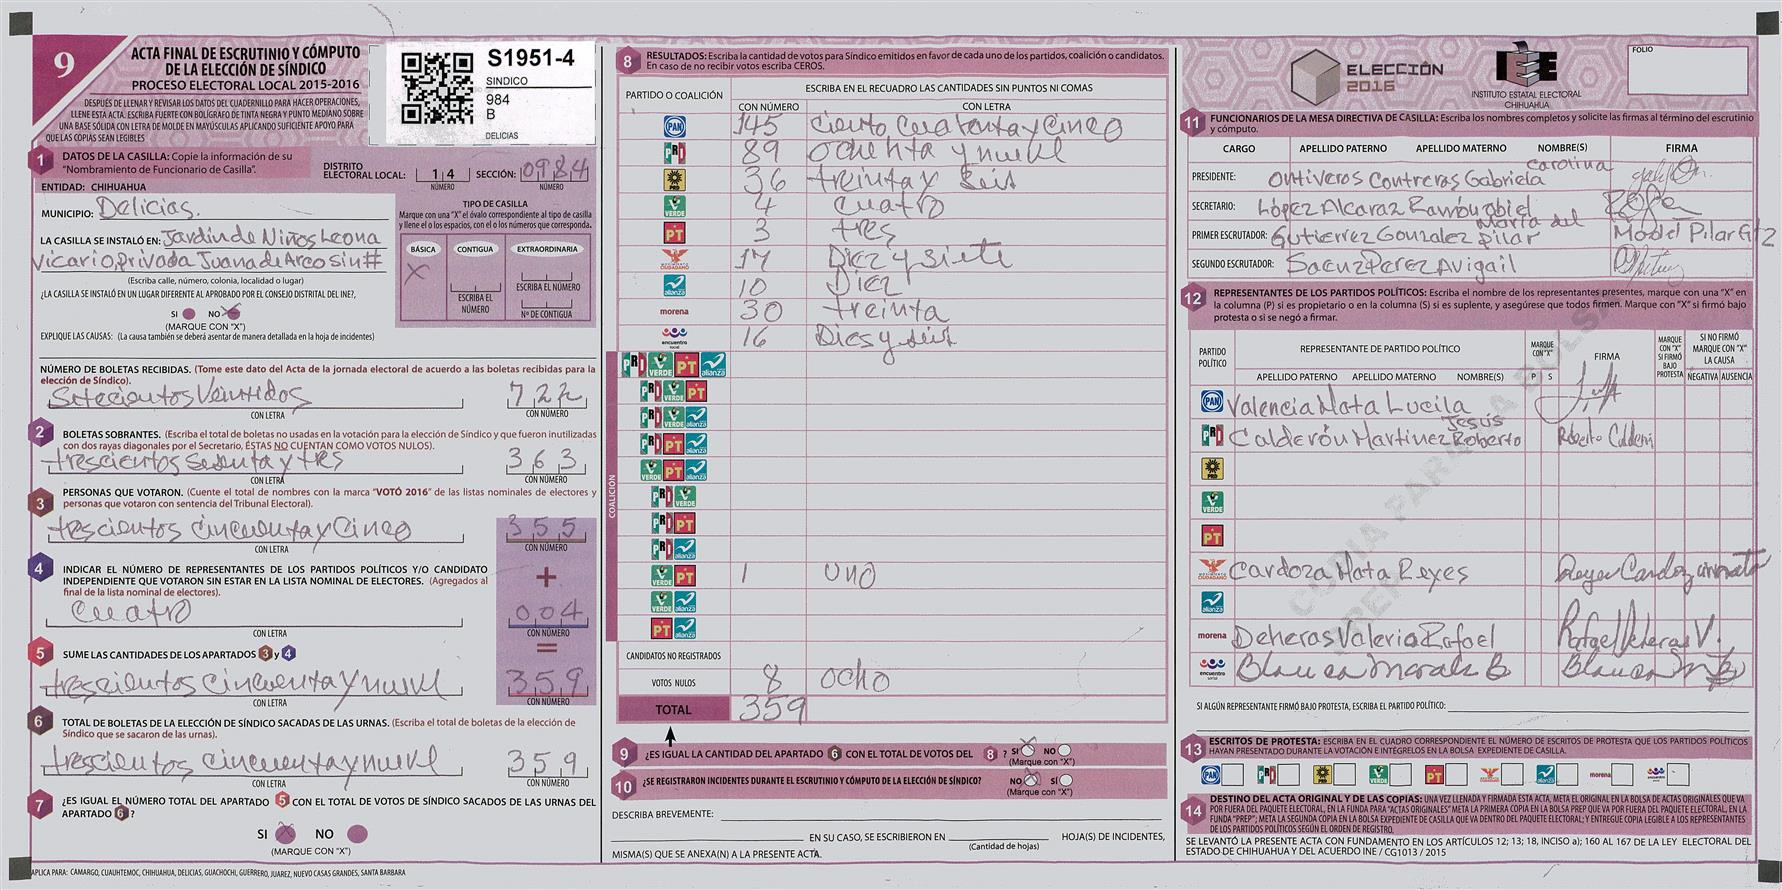 9
ACTA FINAL DE ESCRUTINIO Y CÓMPUTO
DE LA ELECCIÓN DE SÍNDICO
PROCESO ELECTORAL LOCAL 2015-2016
DESPUÉS DE LLENAR Y REVISAR LOS DATOS DEL CUADERNILLO PARA HACER OPERACIONES,
LLENE ESTA ACTA. ESCRIBA FUERTE CON BOLÍGRAFO DE TINTA NEGRA Y PUNTO MEDIANO SOBRE
UNA BASE SÓLIDA CON LETRA DE MOLDE EN MAYÚSCULAS APLICANDO SUFICIENTE APOYO PARA
QUE LAS COPIAS SEAN LEGIBLES
S1951-4
SINDICO
984
B
DELICIAS
1 DATOS DE LA CASILLA: Copie la información de su
"Nombramiento de Funcionario de Casilla".
DISTRITO
ELECTORAL LOCAL: 1 4 SECCIÓN: 0984
NÚMERO NÚMERO
ENTIDAD: CHIHUAHUA
MUNICIPIO: Delicias.
LA CASILLA SE INSTALÓ EN: Jardin de Niños Leona
Vicario, privada Juana de Arco sin #
(Escriba calle, número, colonia, localidad o lugar)
TIPO DE CASILLA
Marque con una "X" el óvalo correspondiente al tipo de casilla
y llene el o los espacios, con el o los números que corresponda.
BÁSICA CONTIGUA EXTRAORDINARIA
X
ESCRIBA EL NÚMERO
ESCRIBA EL
NÚMERO
Nº DE CONTIGUA
¿LA CASILLA SE INSTALÓ EN UN LUGAR DIFERENTE AL APROBADO POR EL CONSEJO DISTRITAL DEL INE?,
SI NO X
(MARQUE CON "X")
EXPLIQUE LAS CAUSAS: (La causa también se deberá asentar de manera detallada en la hoja de incidentes)
NÚMERO DE BOLETAS RECIBIDAS. (Tome este dato del Acta de la jornada electoral de acuerdo a las boletas recibidas para la
elección de Síndico).
Setecientos Veintidos 722
CON LETRA CON NÚMERO
2 BOLETAS SOBRANTES. (Escriba el total de boletas no usadas en la votación para la elección de Síndico y que fueron inutilizadas
con dos rayas diagonales por el Secretario, ÉSTAS NO CUENTAN COMO VOTOS NULOS).
trescientos sesenta y tres 363
CON LETRA CON NÚMERO
3 PERSONAS QUE VOTARON. (Cuente el total de nombres con la marca "VOTÓ 2016" de las listas nominales de electores y
personas que votaron con sentencia del Tribunal Electoral).
trescientos cincuenta y Cinco 355
CON LETRA CON NÚMERO
4 INDICAR EL NÚMERO DE REPRESENTANTES DE LOS PARTIDOS POLÍTICOS Y/O CANDIDATO
INDEPENDIENTE QUE VOTARON SIN ESTAR EN LA LISTA NOMINAL DE ELECTORES. (Agregados al
final de la lista nominal de electores).
+
cuatro 004
CON LETRA CON NÚMERO
5 SUME LAS CANTIDADES DE LOS APARTADOS 3 y 4
=
trescientos cincuenta y nueve 359
CON LETRA CON NÚMERO
6 TOTAL DE BOLETAS DE LA ELECCIÓN DE SÍNDICO SACADAS DE LAS URNAS. (Escriba el total de boletas de la elección de
Síndico que se sacaron de las urnas).
trescientos cincuenta y nueve 359
CON LETRA CON NÚMERO
7 ¿ES IGUAL EL NÚMERO TOTAL DEL APARTADO 5 CON EL TOTAL DE VOTOS DE SÍNDICO SACADOS DE LAS URNAS DEL
APARTADO 6?
SI X NO
(MARQUE CON "X")
APLICA PARA: CAMARGO, CUAUHTEMOC, CHIHUAHUA, DELICIAS, GUACHOCHI, GUERRERO, JUAREZ, NUEVO CASAS GRANDES, SANTA BARBARA
8 RESULTADOS: Escriba la cantidad de votos para Síndico emitidos en favor de cada uno de los partidos, coalición o candidatos.
En caso de no recibir votos escriba CEROS.
PARTIDO O COALICIÓN ESCRIBA EN EL RECUADRO LAS CANTIDADES SIN PUNTOS NI COMAS
CON NÚMERO CON LETRA
PAN 145 ciento cuarenta y Cinco
PRD 89 ochenta y nueve
PRD 36 treinta y seis
VERDE 4 cuatro
PT 3 tres
MOVIMIENTO CIUDADANO 17 Diez y siete
alianza 10 Diez
morena 30 treinta
encuentro social 16 Dies y seis
COALICIÓN
PRD VERDE PT alianza
PRD VERDE PT
PRD VERDE alianza
PRD PT alianza
VERDE PT alianza
PRD VERDE
PRD PT
PRD alianza
VERDE PT 1 uno
VERDE alianza
PT alianza
CANDIDATOS NO REGISTRADOS
VOTOS NULOS 8 ocho
TOTAL 359
9 ¿ES IGUAL LA CANTIDAD DEL APARTADO 6 CON EL TOTAL DE VOTOS DEL 8 ? SI X NO
(Marque con "X")
10 ¿SE REGISTRARON INCIDENTES DURANTE EL ESCRUTINIO Y CÓMPUTO DE LA ELECCIÓN DE SÍNDICO? NO X SÍ
(Marque con "X")
DESCRIBA BREVEMENTE:
EN SU CASO, SE ESCRIBIERON EN HOJA(S) DE INCIDENTES,
(Cantidad de hojas)
MISMA(S) QUE SE ANEXA(N) A LA PRESENTE ACTA.
ELECCIÓN
2016
IEE
INSTITUTO ESTATAL ELECTORAL
CHIHUAHUA
FOLIO
11 FUNCIONARIOS DE LA MESA DIRECTIVA DE CASILLA: Escriba los nombres completos y solicite las firmas al término del escrutinio
y cómputo.
CARGO APELLIDO PATERNO APELLIDO MATERNO NOMBRE(S) FIRMA
Carolina
PRESIDENTE: Ontiveros Contreras Gabriela
SECRETARIO: López Alcaraz
María del
PRIMER ESCRUTADOR: Gutierrez Gonzalez Pilar Ma del Pilar
SEGUNDO ESCRUTADOR: Saenz Perez Avigail
12 REPRESENTANTES DE LOS PARTIDOS POLÍTICOS: Escriba el nombre de los representantes presentes, marque con una "X" en
la columna (P) si es propietario o en la columna (S) si es suplente, y asegúrese que todos firmen. Marque con "X" si firmó bajo
protesta o si se negó a firmar.
PARTIDO
POLÍTICO
REPRESENTANTE DE PARTIDO POLÍTICO
APELLIDO PATERNO APELLIDO MATERNO NOMBRE(S)
MARQUE
CON "X"
P S
FIRMA
MARQUE
CON "X"
SI FIRMÓ
BAJO
PROTESTA
SI NO FIRMÓ
MARQUE CON "X"
LA CAUSA
NEGATIVA AUSENCIA
COPIA PARA BOLSA
PREP
PAN Valencia Mata Lucila
Jesús
PRD Calderón Martinez Roberto Roberto Calderón
PRD
VERDE
PT
MOVIMIENTO CIUDADANO Cardoza Mata Reyes Reyes Cardoza Mata
alianza
morena Deheras Valeria Rafael Rafael Deheras V.
encuentro social Blanca Morales B Blanca
SI ALGÚN REPRESENTANTE FIRMÓ BAJO PROTESTA, ESCRIBA EL PARTIDO POLÍTICO:
13 ESCRITOS DE PROTESTA: ESCRIBA EN EL CUADRO CORRESPONDIENTE EL NÚMERO DE ESCRITOS DE PROTESTA QUE LOS PARTIDOS POLÍTICOS
HAYAN PRESENTADO DURANTE LA VOTACIÓN E INTÉGRELOS EN LA BOLSA EXPEDIENTE DE CASILLA.
PAN PRD PRD VERDE PT alianza morena encuentro social
14 DESTINO DEL ACTA ORIGINAL Y DE LAS COPIAS: UNA VEZ LLENADA Y FIRMADA ESTA ACTA, META EL ORIGINAL EN LA BOLSA DE ACTAS ORIGINALES QUE VA
POR FUERA DEL PAQUETE ELECTORAL, EN LA FUNDA PARA "ACTAS ORIGINALES" META LA PRIMERA COPIA EN LA BOLSA PREP QUE VA POR FUERA DEL PAQUETE ELECTORAL, EN LA
FUNDA "PREP"; META LA SEGUNDA COPIA EN LA BOLSA EXPEDIENTE DE CASILLA QUE VA DENTRO DEL PAQUETE ELECTORAL; Y ENTREGUE COPIA LEGIBLE A LOS REPRESENTANTES
DE LOS PARTIDOS POLÍTICOS SEGÚN EL ORDEN DE REGISTRO.
SE LEVANTÓ LA PRESENTE ACTA CON FUNDAMENTO EN LOS ARTÍCULOS 12; 13; 18, INCISO a); 160 AL 167 DE LA LEY ELECTORAL DEL
ESTADO DE CHIHUAHUA Y DEL ACUERDO INE / CG1013 / 2015